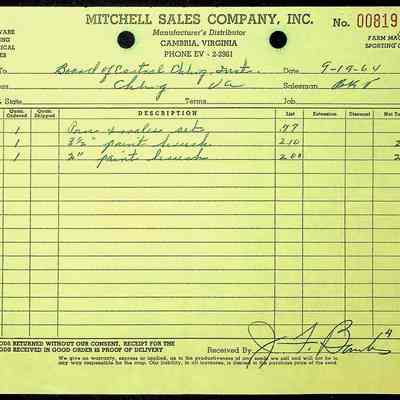 MITCHELL SALES COMPANY, INC.
No. 00819
WARE
Manufacturer's Distributor
FARM MAC
CAMBRIA, VIRGINIA
SPORTING
PHONE EV - 2-2961
To Board of Control Date 9-19-64
Address Va Salesman
& State Terms Job
Quan. Ordered Quan. Shipped DESCRIPTION List Extension Discount Net
1 set .97
1 3½" paint brush 210 2
1 2" paint brush 200 2
ODS RETURNED WITHOUT OUR CONSENT, RECEIPT FOR THE
ODS RECEIVED IN GOOD ORDER IS PROOF OF DELIVERY
Received By J. F. Banks
We give no warranty, express or implied, as to the productiveness of any seeds we sell and will not be in
any way responsible for the crop. Our liability, in all instances, is limited to the purchase price of the seed.